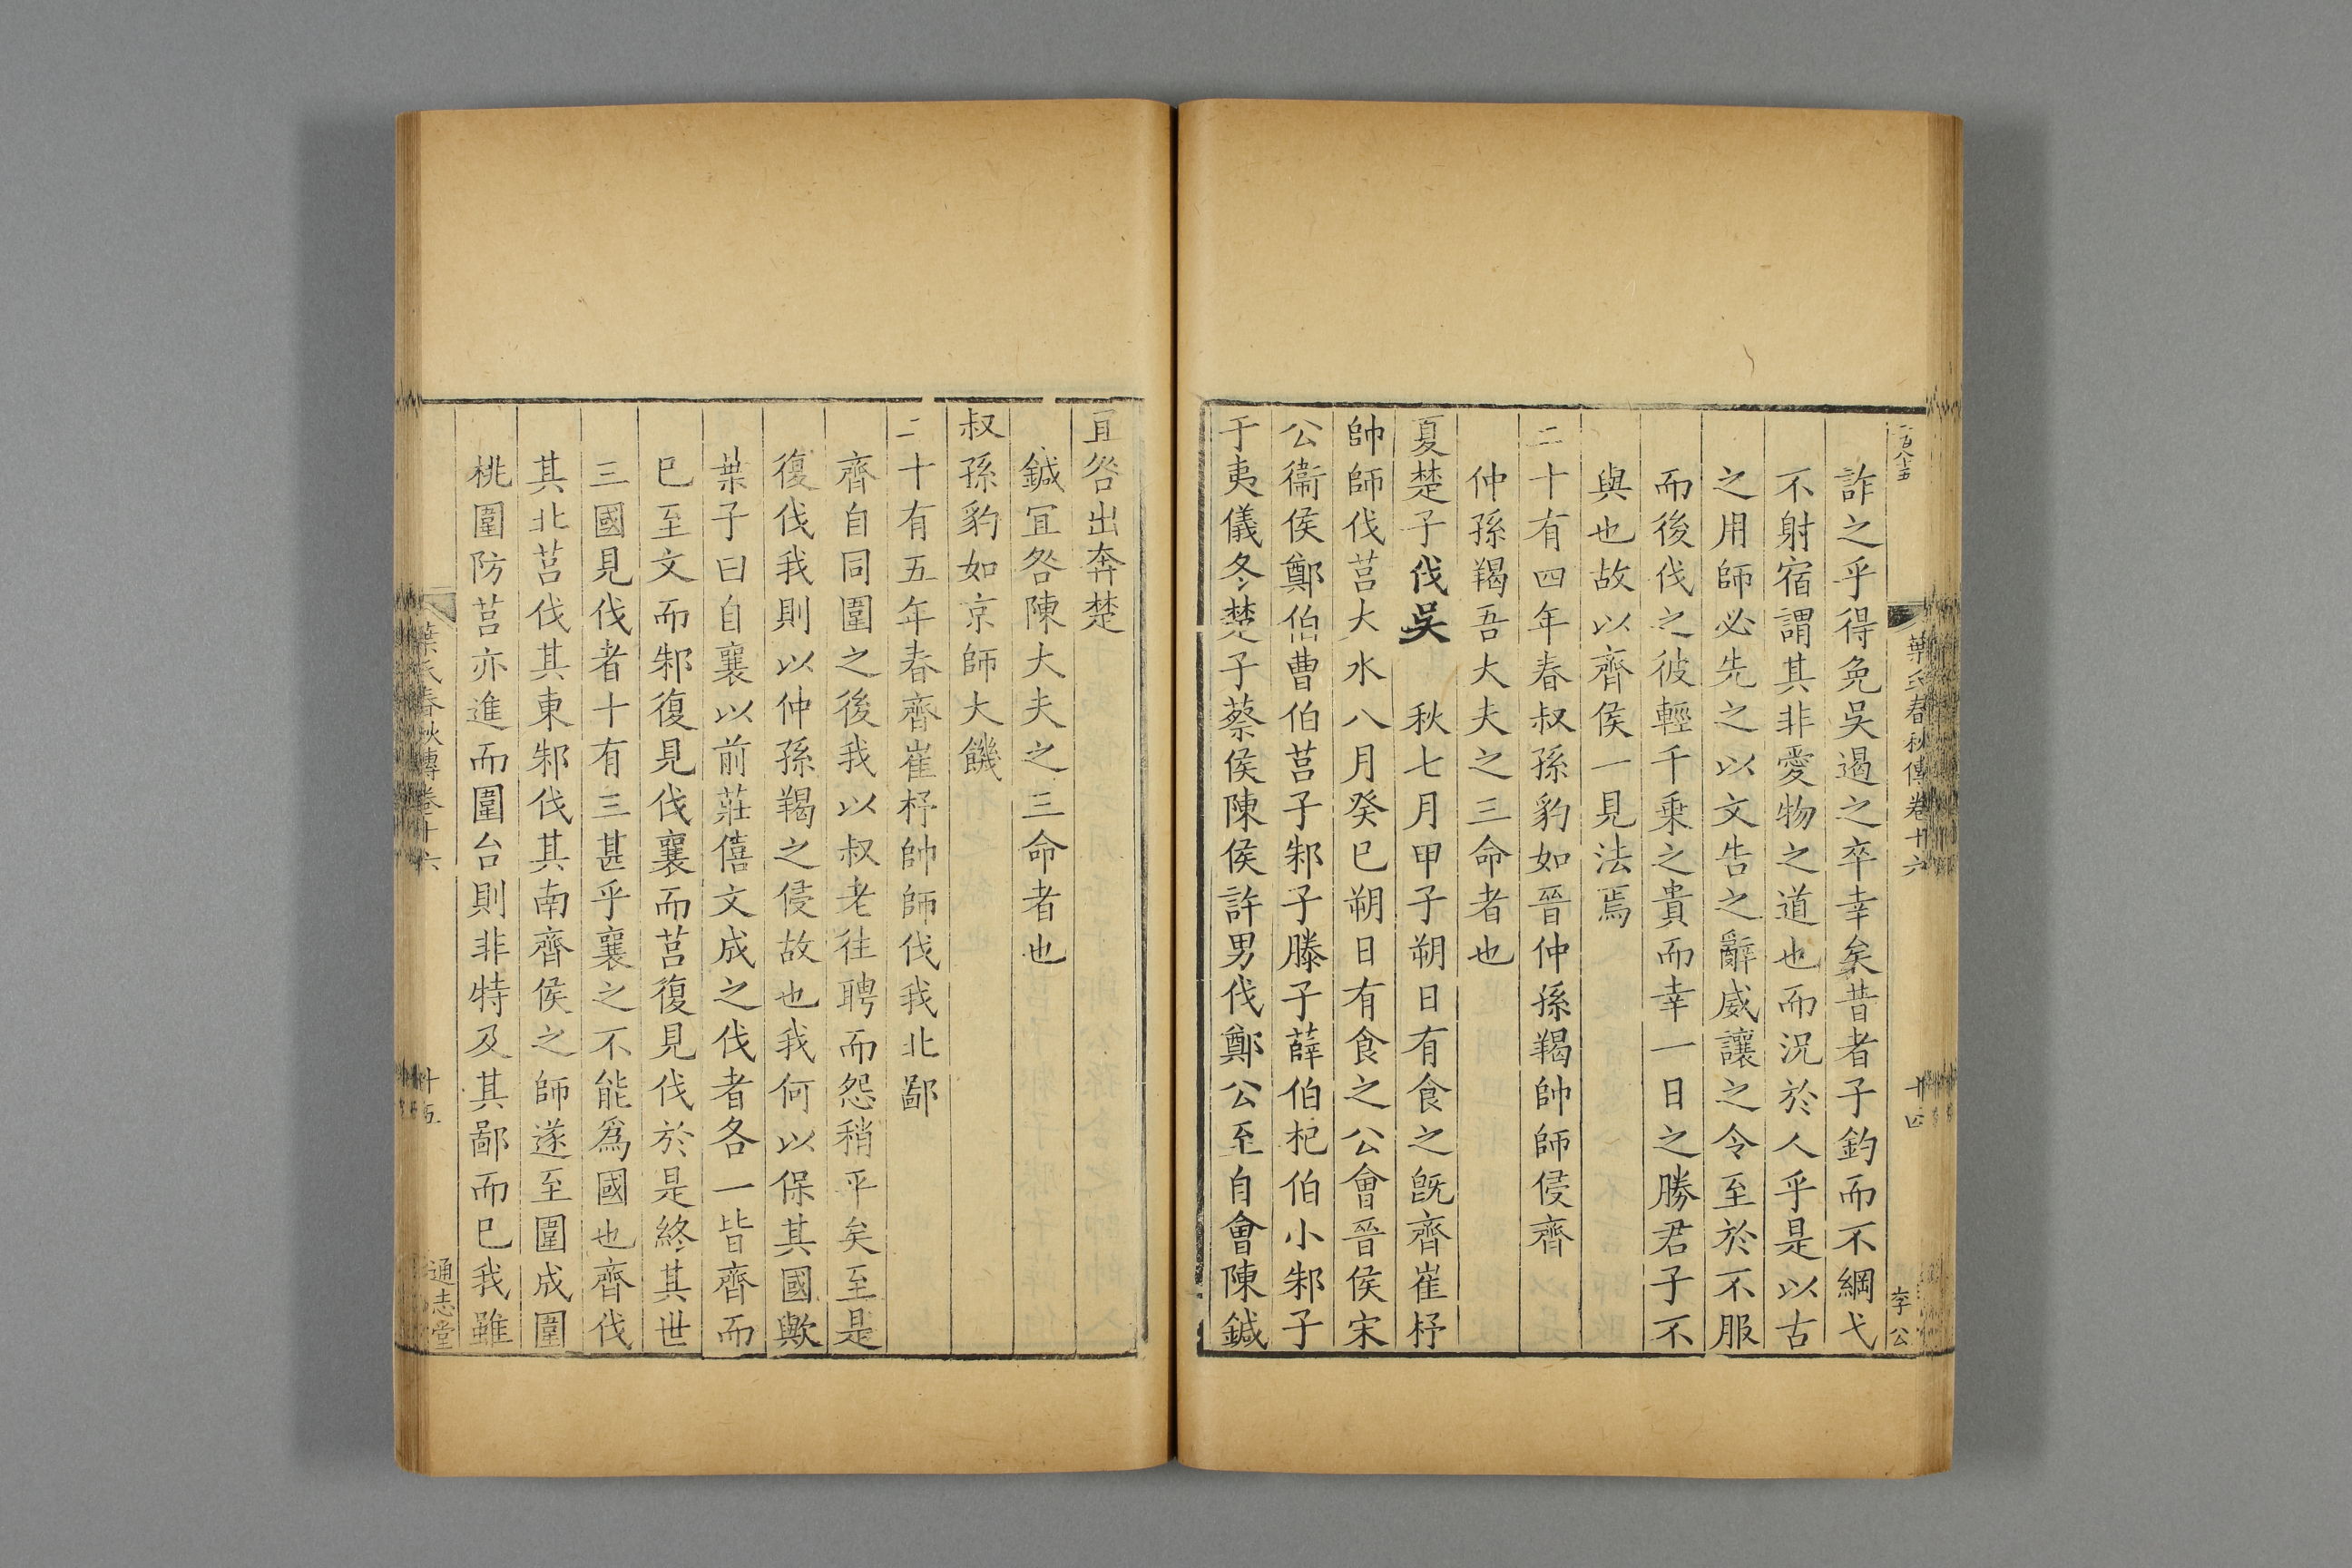 葉氏春秋傳卷十六
十四
李公
詐之乎得免吳遏之卒幸矣昔者子釣而不綱弋
不射宿謂其非愛物之道也而況於人乎是以古
之用師必先之以文告之辭威讓之令至於不服
而後伐之彼輕千乗之貴而幸一日之勝君子不
與也故以齊侯一見法焉
二十有四年春叔孫豹如晉仲孫羯帥師侵齊
仲孫羯吾大夫之三命者也
夏楚子伐吳 秋七月甲子朔日有食之旣齊崔杼
帥師伐莒大水八月癸巳朔日有食之公會晉侯宋
公衞侯鄭伯曹伯莒子邾子滕子薛伯杞伯小邾子
于夷儀冬楚子蔡侯陳侯許男伐鄭公至自會陳鍼
冝咎出奔楚
鍼冝咎陳大夫之三命者也
叔孫豹如京師大饑
二十有五年春齊崔杼帥師伐我北鄙
齊自同圍之後我以叔老往聘而怨稍平矣至是
復伐我則以仲孫羯之侵故也我何以保其國歟
葉子曰自襄以前莊僖文成之伐者各一皆齊而
巳至文而邾復見伐襄而莒復見伐於是終其世
三國見伐者十有三甚乎襄之不能爲國也齊伐
其北莒伐其東邾伐其南齊侯之師遂至圍成圍
桃圍防莒亦進而圍台則非特及其鄙而巳我雖
葉氏春秋傳卷十六
十五
通志堂